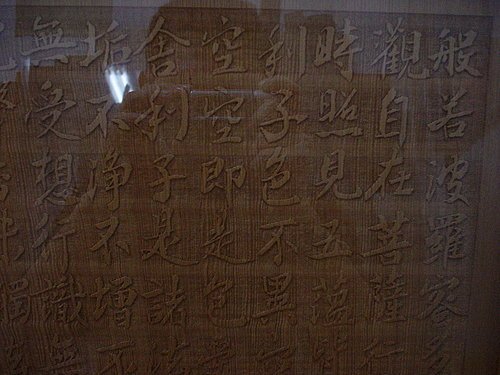 般若波羅蜜多
觀自在菩薩行
時照見五蘊皆
利子色不異空
空空即是色受
舍利子是諸法
垢不淨不增不
無受想行識無